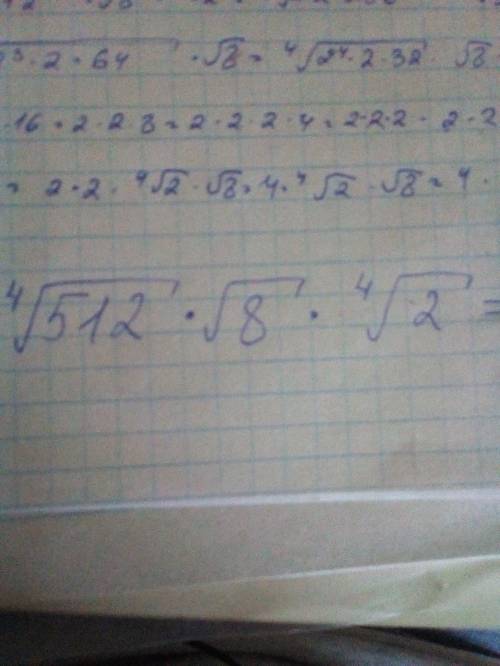 ³ · 2 · 64 · √8 = ⁴√2⁴ · 2 · 32 · √8
· 16 = 2 · 2 · 8 = 2 · 2 · 2 · 4 = 2 · 2 · 2 · 2 · 2
= 2 · 2 · ⁴√2 · √8 = 4 · ⁴√2 · √8 = 4 ·
⁴√512 · √8 · ⁴√2 =